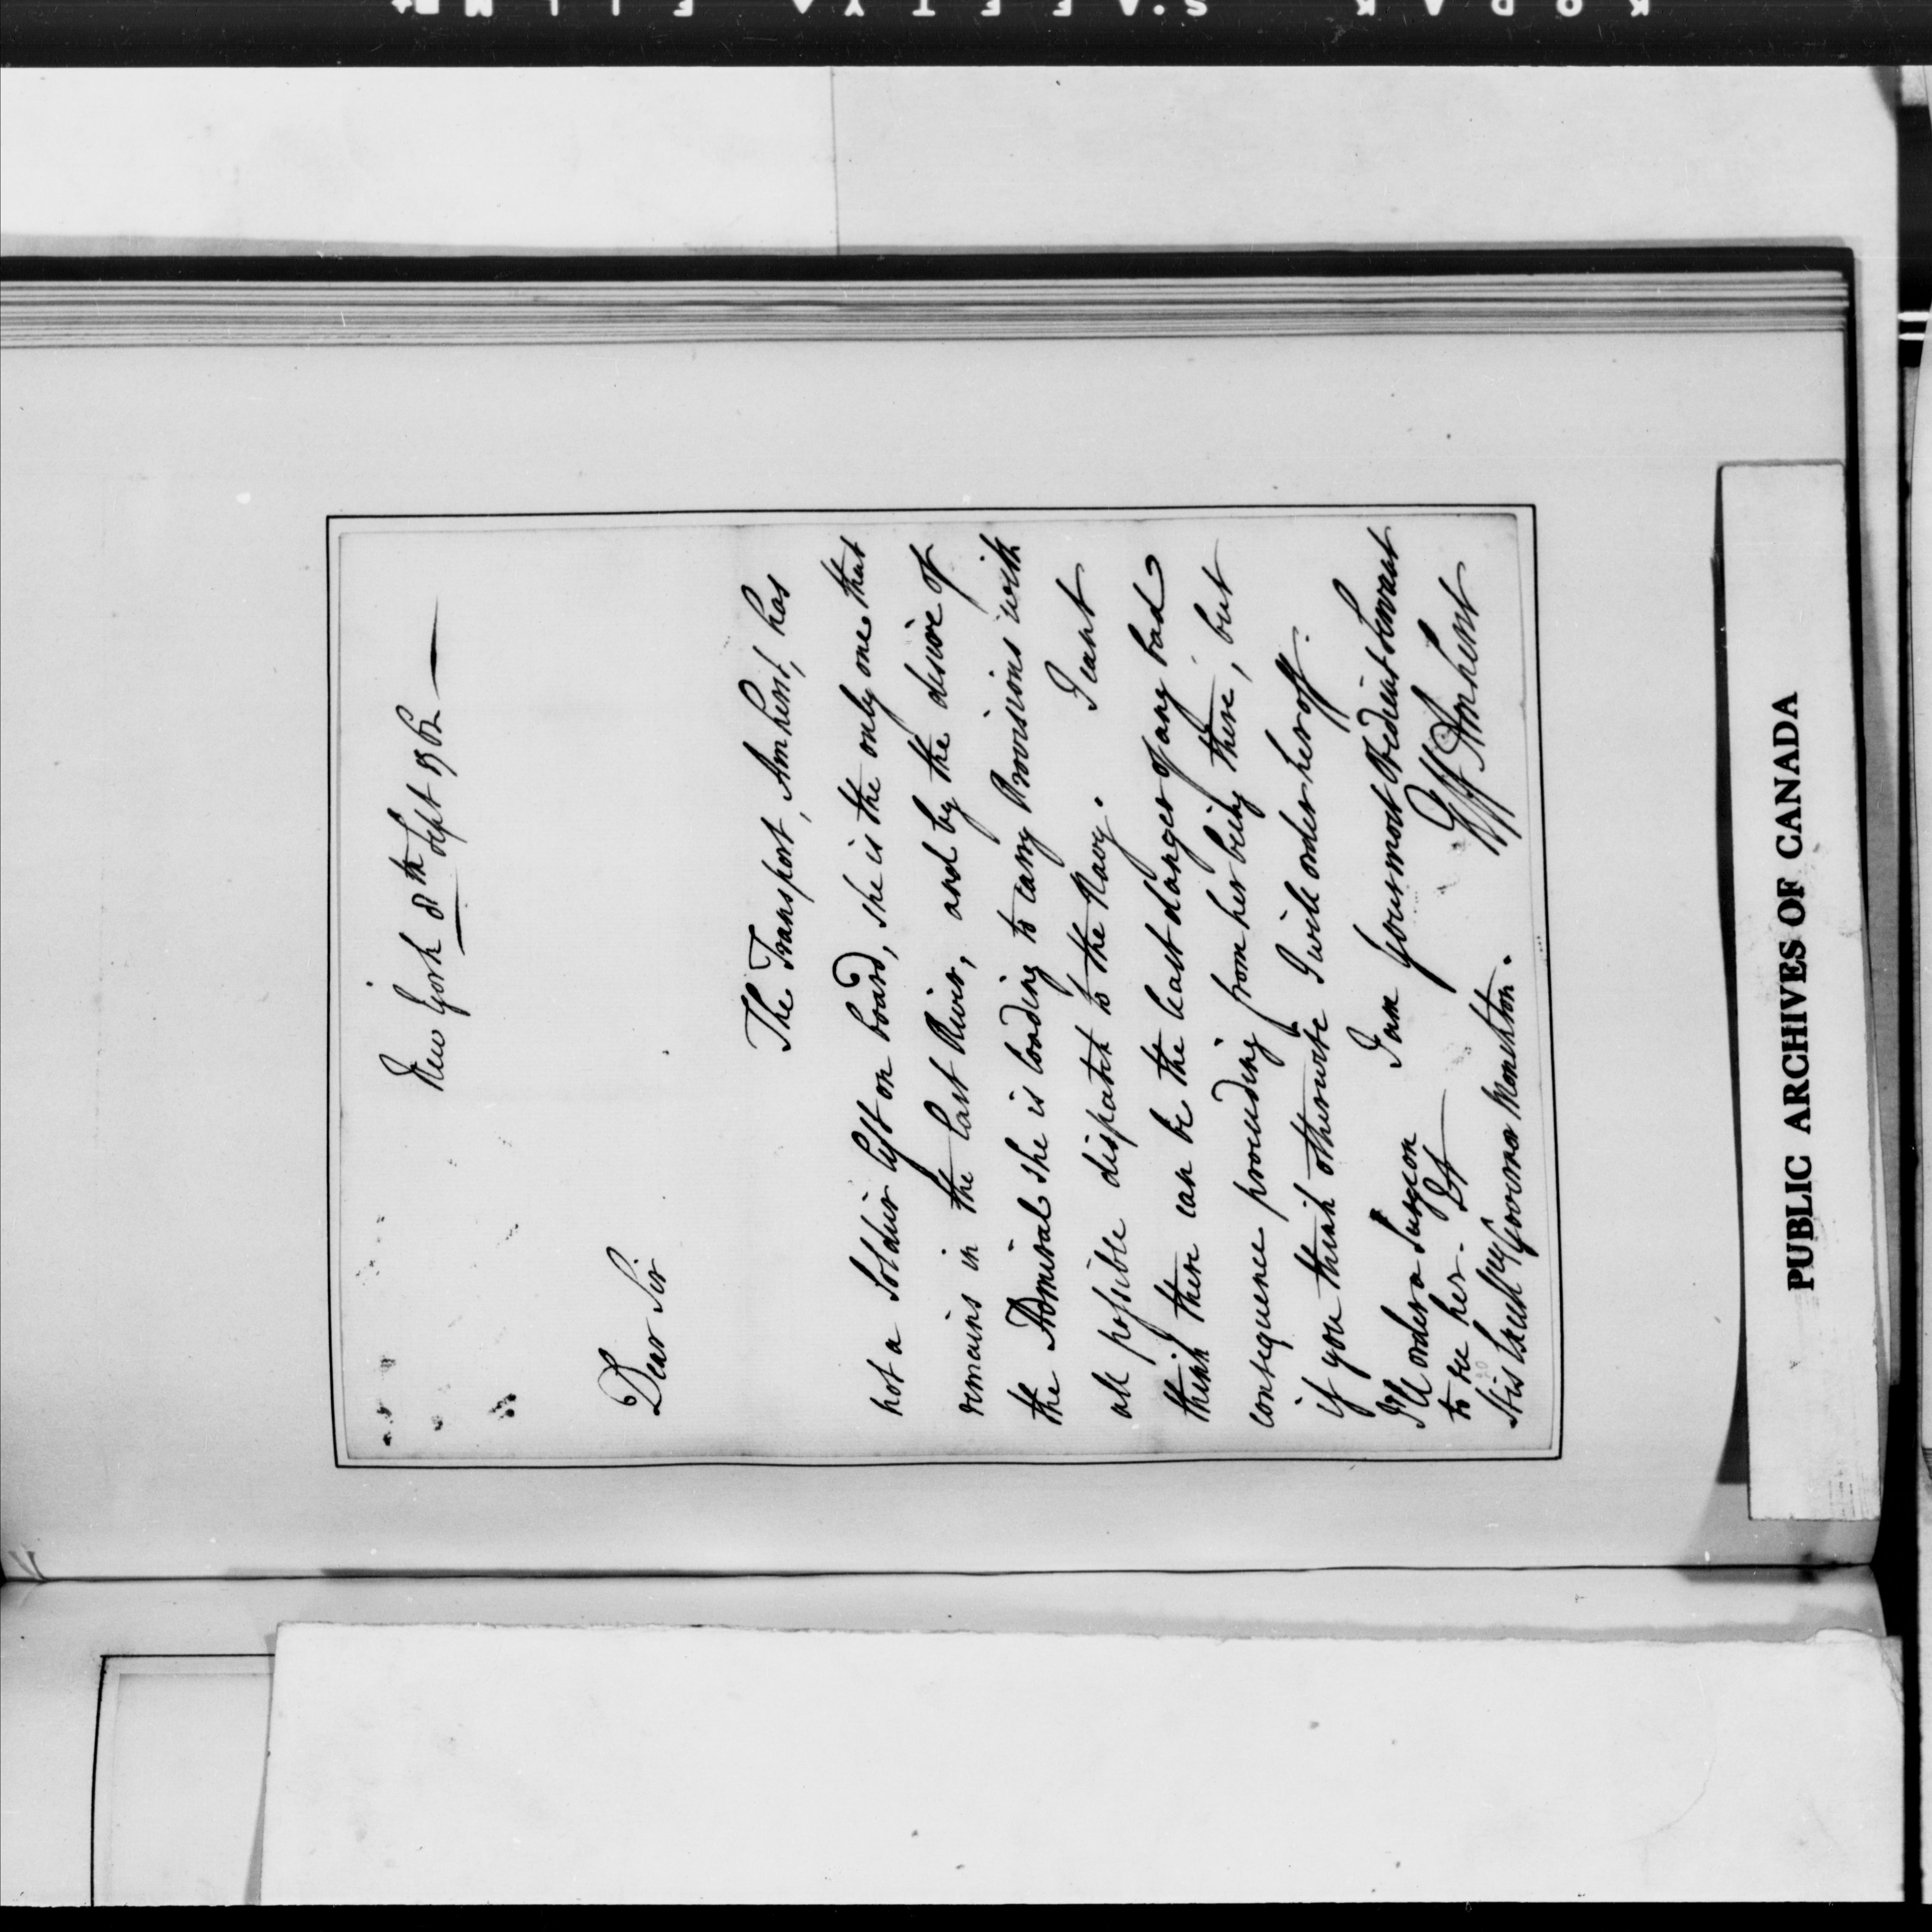 New York 8th Sept 1762
Dear Sir
The Transport, Amherst, has
not a Soldier left on board, she is the only one that
remains in the East River, and by the desire of
the Admiral she is loading to carry Provisions with
all possible dispatch to the Navy. I cant
think there can be the least danger of any bad
consequence proceeding from her being there, but
if you think otherwise I will order her off.
I am Your most Obedient Servant
Jeff Amherst
I'll order a Surgeon
to see her. JA
His Excellcy Governor Monckton.
PUBLIC ARCHIVES OF CANADA
KODAK S'AFETY FILM